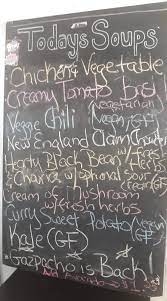 Todays Soups
Chicken & Vegetable
Creamy Tomato Basil
(vegetarian
Veggie Chili (Vegan
New England Clam Chowder
Hearty Black Bean
& Chorizo w/optional Sour Cream (GF)
Cream of Mushroom
w/fresh herbs
Curry Sweet Potato (vegan
Kale (GF)
Gazpacho is Back!